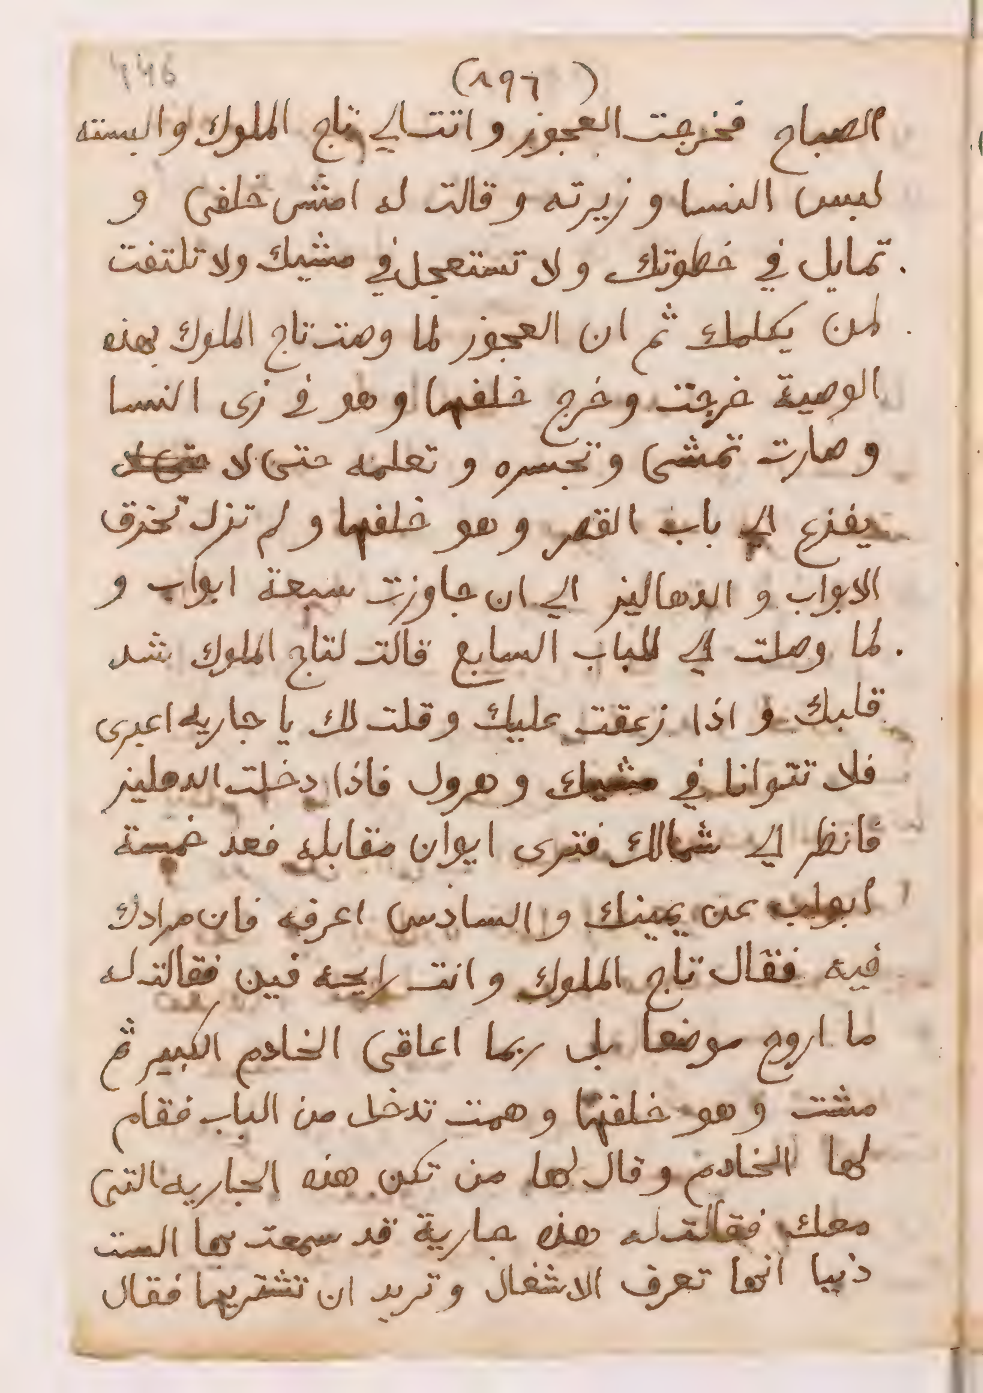 (٨٩٦)
الصباح فخرجت العجوز واتت الي تاج الملوك والبسته
لبس النسا وزيرته وقالت له امشى خلفى و
تمايل في خطوتك ولا تستعجل في مشيك ولا تلتفت
لمن يكلمك ثم ان العجوز لما وصت تاج الملوك بهذه
الوصية خرجت وخرج خلفها وهو في زى النسا
وصارت تمشى وتجسره وتعلمه حتى لا
يفزع الي باب القصر وهو خلفها ولم تزل تخترق
الابواب والدهاليز الي ان جاوزت سبعة ابواب و
لما وصلت الي الباب السابع قالت لتاج الملوك شد
قلبك واذا زعقت عليك وقلت لك يا جاريه اعبرى
فلا تتوانا في مشيك وهرول فاذا دخلت الدهليز
فانظر الي شمالك فترى ايوان مقابله فعد خمسة
ابواب عن يمينك والسادس اعرفه فان مرادك
فيه فقال تاج الملوك وانت رايحه فين فقالت له
ما اروح موضعا بلى ربما اعاقى الخادم الكبير ثم
مشت وهو خلفها وهمت تدخل من الباب فقام
لها الخادم وقال لها من تكن هذه الجاريه التى
معك فقالت له هذه جارية قد سمعت بها الست
دنيا انها تعرف الاشغال وتريد ان تشتريها فقال